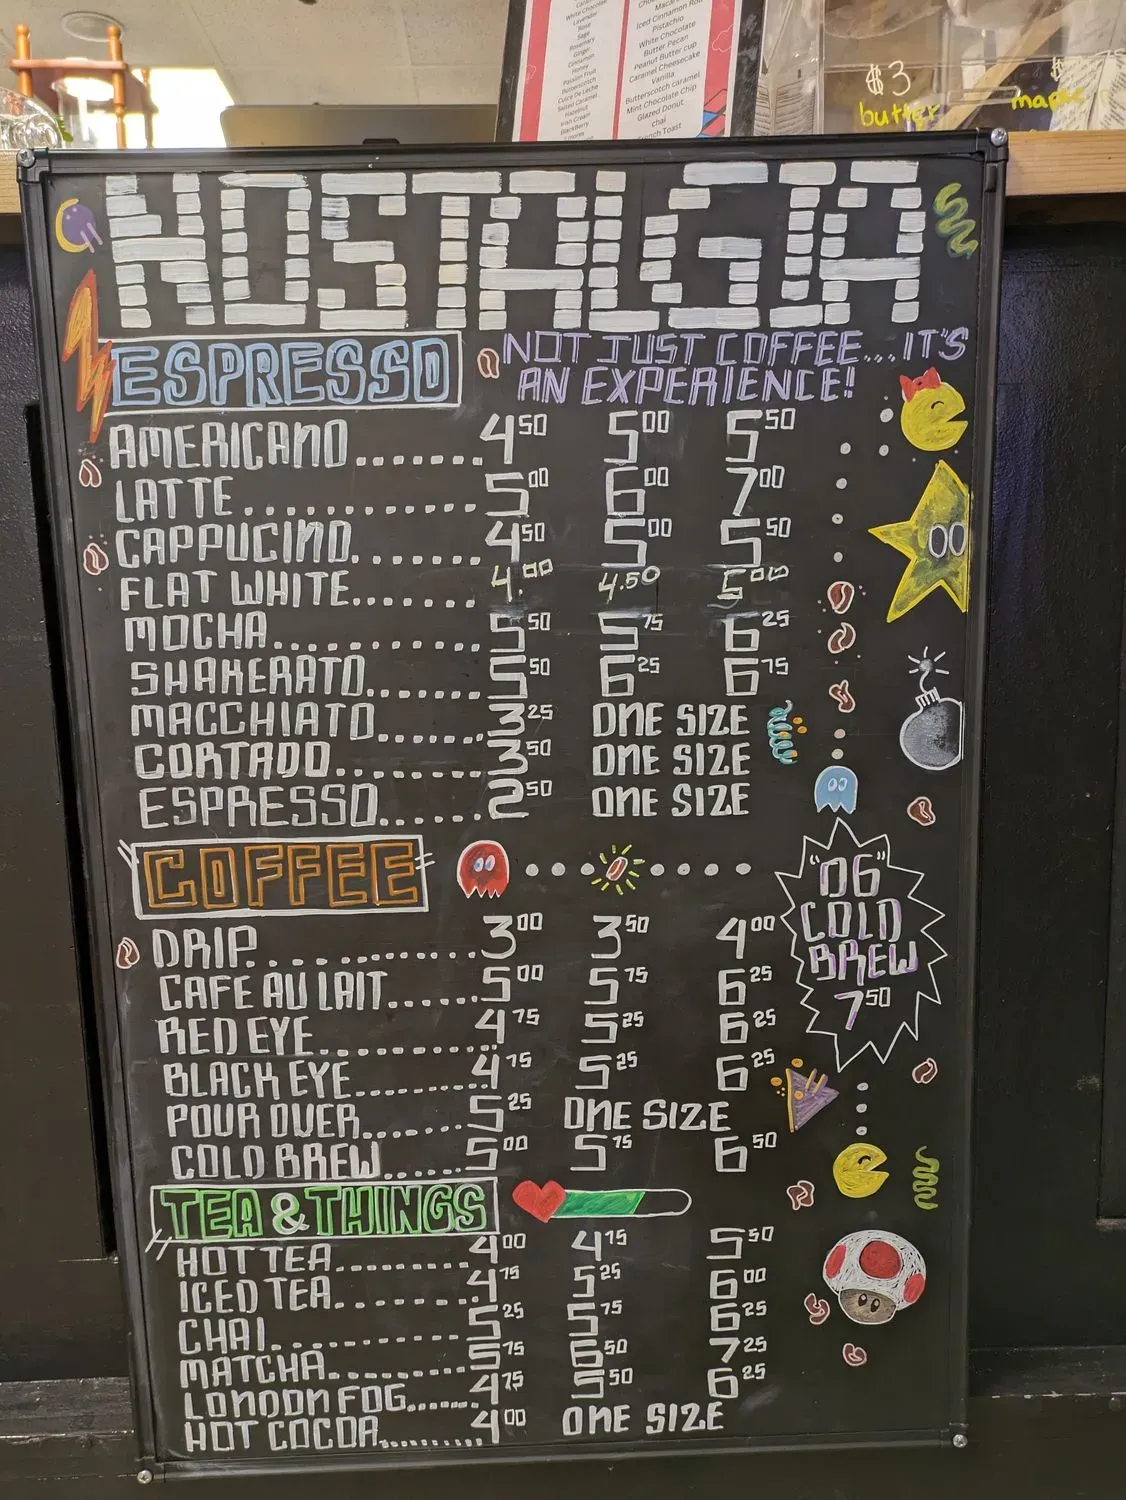 White Chocolate
Lavender
Rose
Sage
Rosemary
Ginger
Cinnamon
Honey
Passion Fruit
Butterscotch
Dulce De Leche
Salted Caramel
Hazelnut
Irish Cream
BlackBerry
Iced Cinnamon Roll
Pistachio
White Chocolate
Butter Pecan
Peanut Butter cup
Caramel Cheesecake
Vanilla
Butterscotch caramel
Mint Chocolate Chip
Glazed Donut
chai
French Toast
$3
butter
maple
NOSTALGIA
ESPRESSO
NOT JUST COFFEE...IT'S
AN EXPERIENCE!
AMERICANO....... 4 50 5 00 5 50
LATTE............ 5 00 6 00 7 00
CAPPUCINO....... 4 50 5 00 5 50
FLAT WHITE....... 4.00 4.50 5 00
MOCHA........... 5 50 5 75 6 25
SHAKERATO....... 5 50 6 25 6 75
MACCHIATO...... 3 25 ONE SIZE
CORTADO........ 3 50 ONE SIZE
ESPRESSO...... 2 50 ONE SIZE
COFFEE
DRIP............. 3 00 3 50 4 00
CAFE AU LAIT...... 5 00 5 75 6 25
RED EYE........... 4 75 5 25 6 25
BLACK EYE........ 4 75 5 25 6 25
POUR OVER....... 5 25 ONE SIZE
COLD BREW..... 5 00 5 75 6 50
"OG"
COLD
BREW
7 50
TEA & THINGS
HOT TEA.......... 4 00 4 75 5 50
ICED TEA......... 4 75 5 25 6 00
CHAI............ 5 25 5 75 6 25
MATCHA......... 5 75 6 50 7 25
LONDON FOG....... 4 75 5 50 6 25
HOT COCOA......... 4 00 ONE SIZE